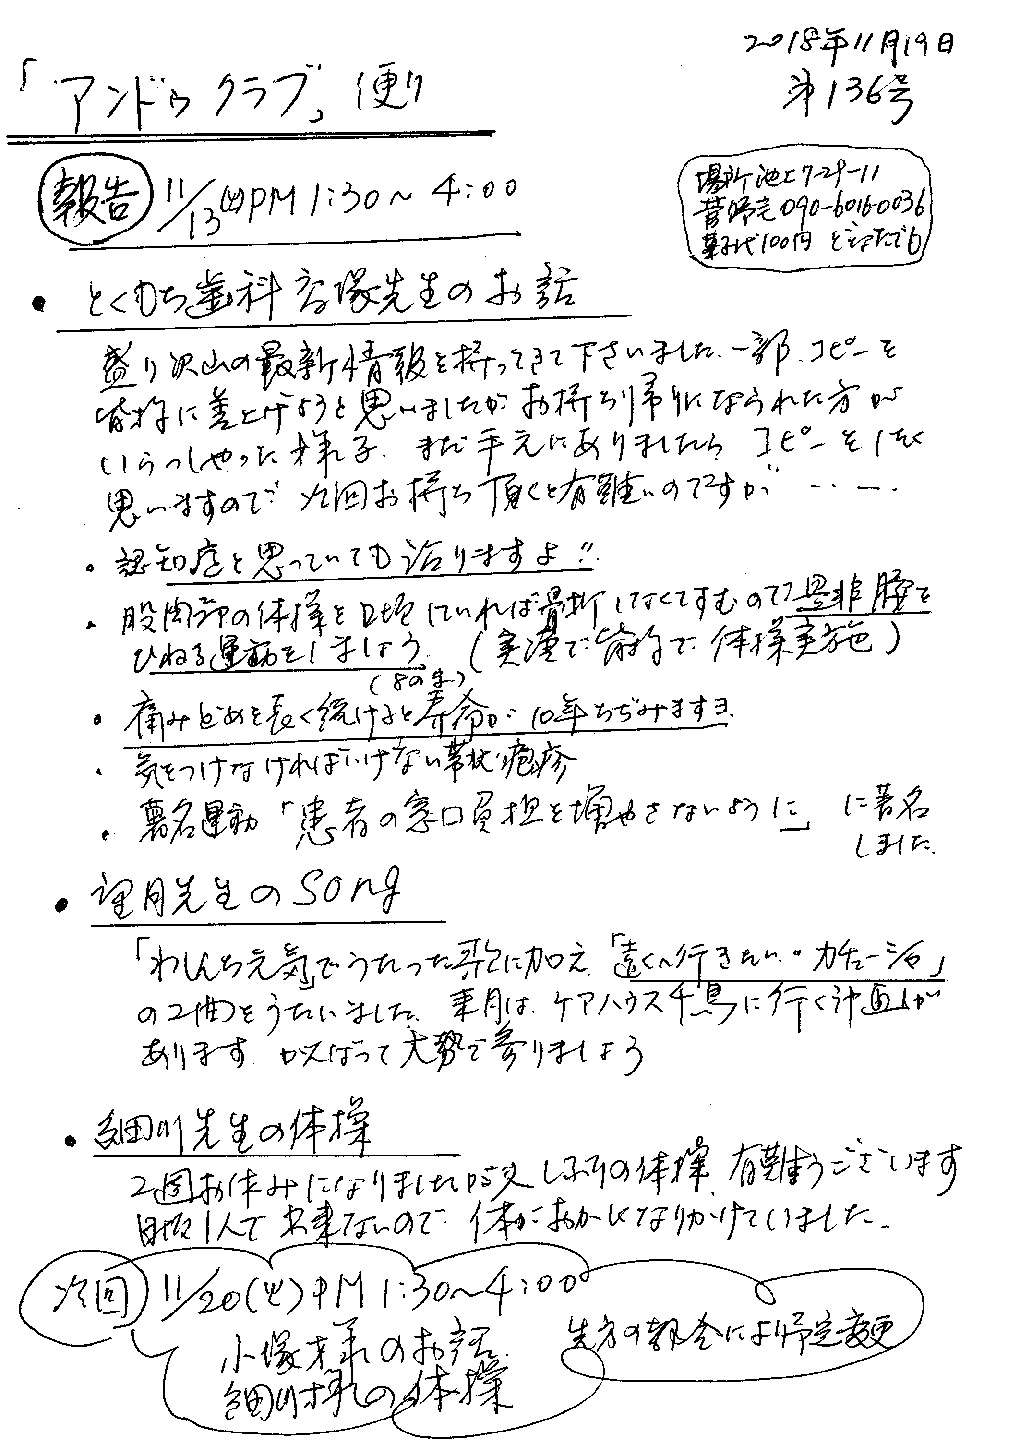 2018年11月19日
「アンドゥクラブ」便り
第136号
場所池上7-29-11
菅野 090-6016-0036
菓子代100円 どなたでも
報告 11/13(火)PM1:30~4:00
• とくもち歯科 塚先生のお話
盛り沢山の最新情報を持ってきて下さいました、一部、コピーを
皆様に差上げようと思いましたが お持ち帰りになられた方が
いらっしゃった様子、まだ手元にありましたら コピーをしたく
思いますので 次回お持ち頂くと有難いのですが・・・・
・認知症と思っていても治りますよ!!
・股関節の体操を日頃していれば骨折しなくてすむので是非腰を
ひねる運動をしましょう。(実演で皆様で 体操実施)
(80の方)
・痛み止めを長く続けると寿命が10年ちぢみますョ
・気をつけなければいけない帯状疱疹
・署名運動「患者の窓口負担を増やさないように」に署名
しました。
• 望月先生のSong
「わしんち元気」でうたった歌に加え、「遠くへ行きたい・カチューシャ」
の2曲をうたいました。来月は、ケアハウス千鳥に行く計画が
あります がんばって大勢で参りましょう
• 細川先生の体操
2週お休みになりましたが久しぶりの体操、有難うございます
自分1人で出来ないので 体がおかしくなりかけていました。
次回 11/20(火)PM1:30~4:00
小塚様のお話
細川様の体操
先方の都合により予定変更